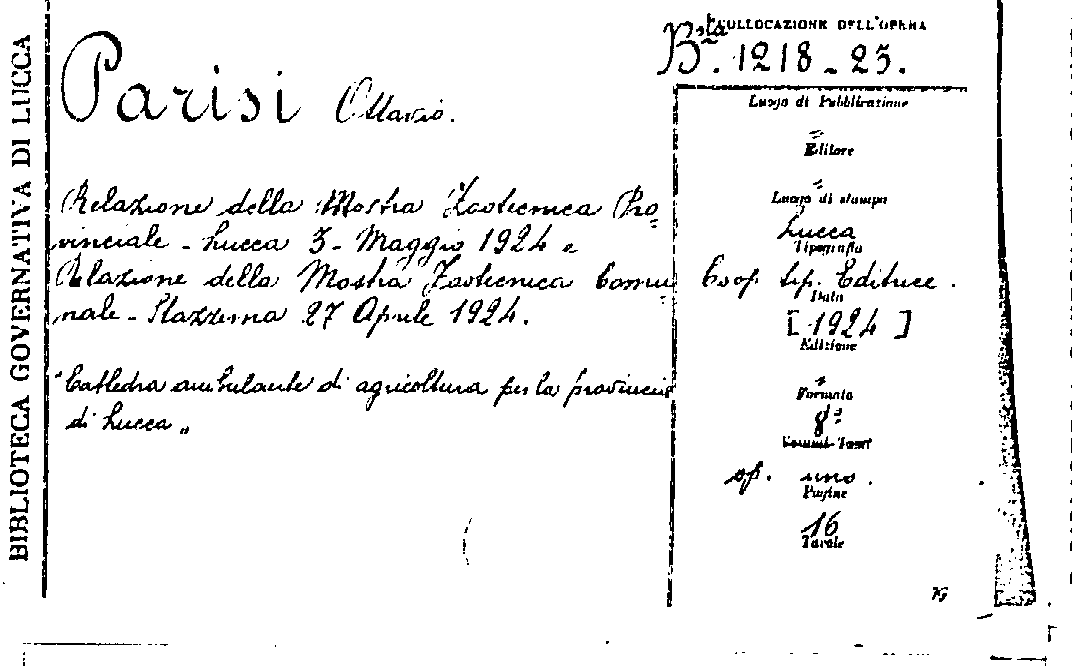 BIBLIOTECA GOVERNATIVA DI LUCCA
COLLOCAZIONE DELL'OPERA
Bsta. 1218-23.
Parisi Ottavio.
Relazione della Mostra Zootecnica Pro=
vinciale - Lucca 3 - Maggio 1924 e
Relazione della Mostra Zootecnica Comu=
nale - Stazzema 27 Aprile 1924.
"Cattedra ambulante di agricoltura per la provincia
di Lucca„
Luogo di Pubblicazione
=
Editore
=
Luogo di stampa
Lucca
Tipografia
Coop tip. Editrice.
Data
[1924]
Edizione
=
Formato
8°
Volumi-Tomi
op. uno.
Pagine
16
Tavole